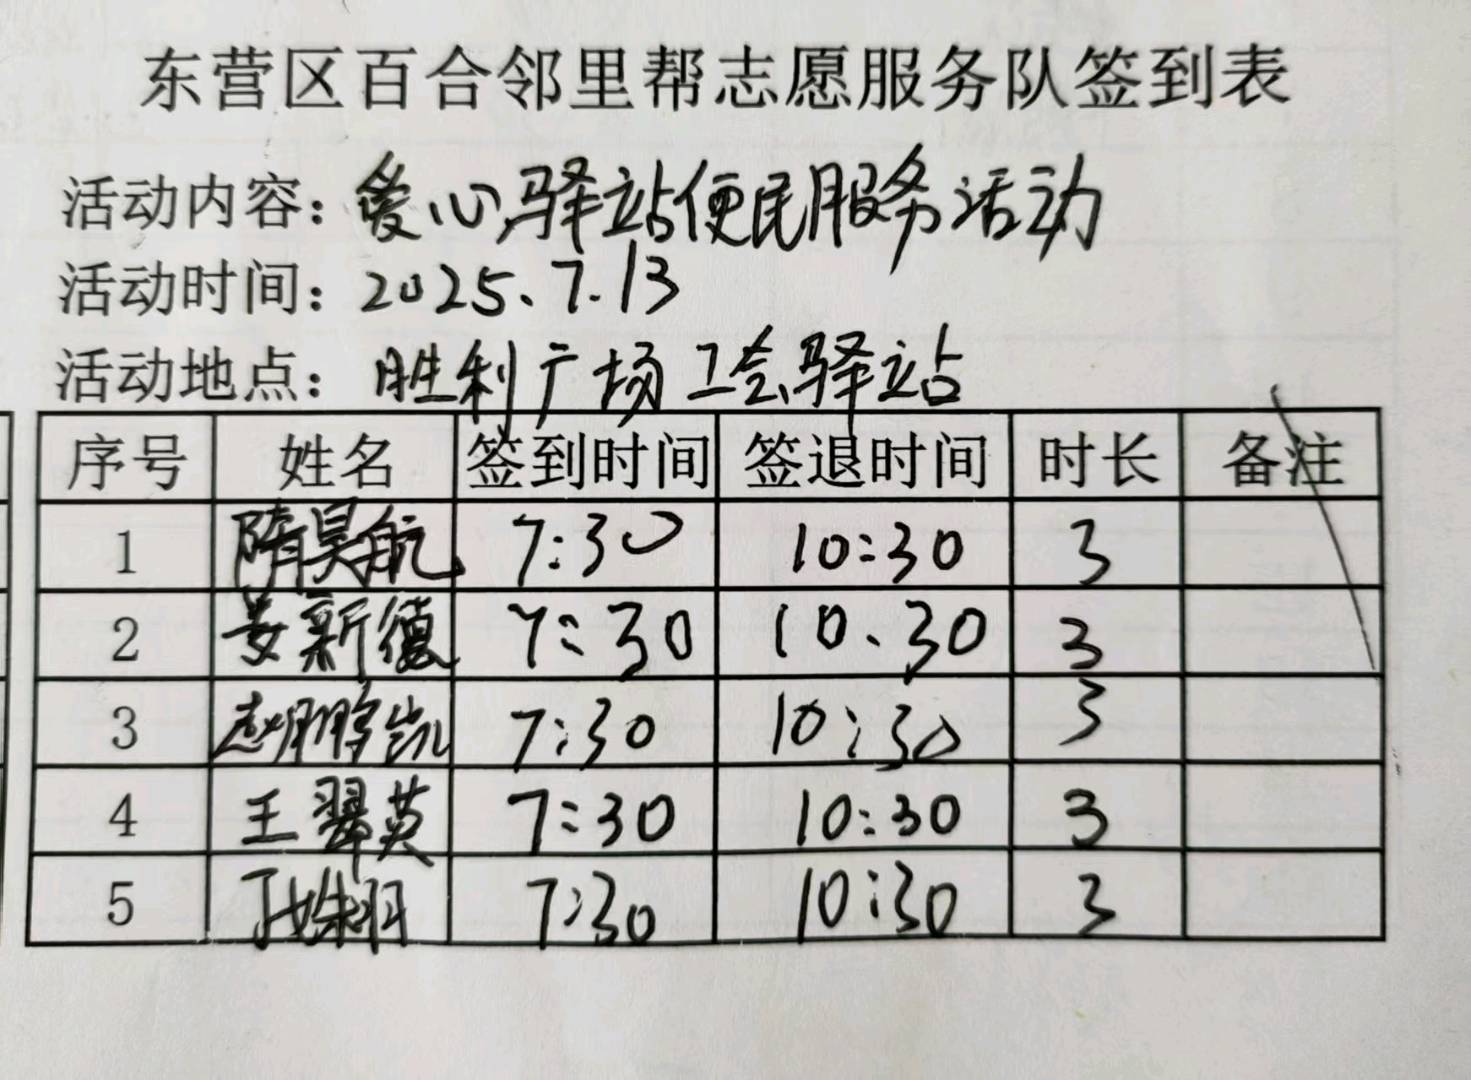 东营区百合邻里帮志愿服务队签到表
活动内容：爱心驿站便民服务活动
活动时间：2025、7.13
活动地点：胜利广场工会驿站
序号 姓名 签到时间 签退时间 时长 备注
1 隋昊航 7:30 10:30 3
2 姜新德 7:30 10:30 3
3 赵鹏凯 7:30 10:30 3
4 王翠英 7:30 10:30 3
5 7:30 10:30 3